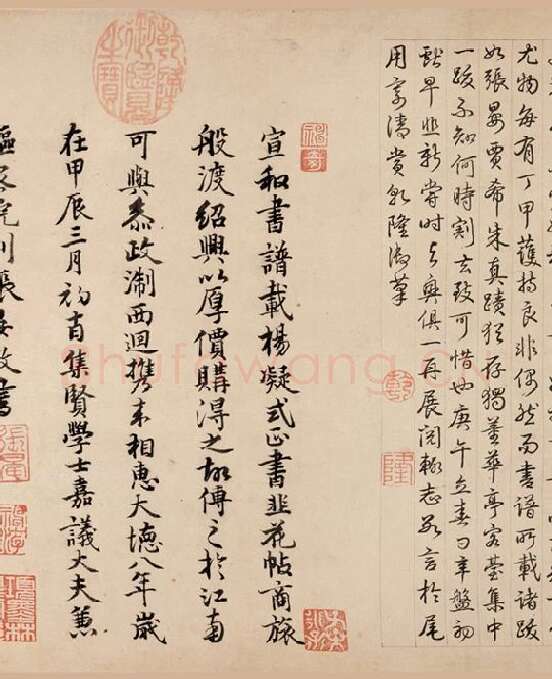 尤物每有丁甲護持良非偶然而書譜所載諸跋
如張晏賈希朱真蹟猶存獨董華亭容臺集中
一跋不知何時割去致可惜也庚午立春日辛盤初
獻早韭新嘗時與興俱一再展閱輒志數言於尾
用寄清賞乾隆御筆
乾
隆
宣和書譜載楊凝式正書韭花帖商旅
般渡紹興以厚價購得之故傳之於江南
可與叅政淛西迴携来相惠大德八年歲
在甲辰三月初吉集賢學士嘉議大夫兼
樞密院判張晏敬書
乾隆御覽之寶
Shufawang.CN